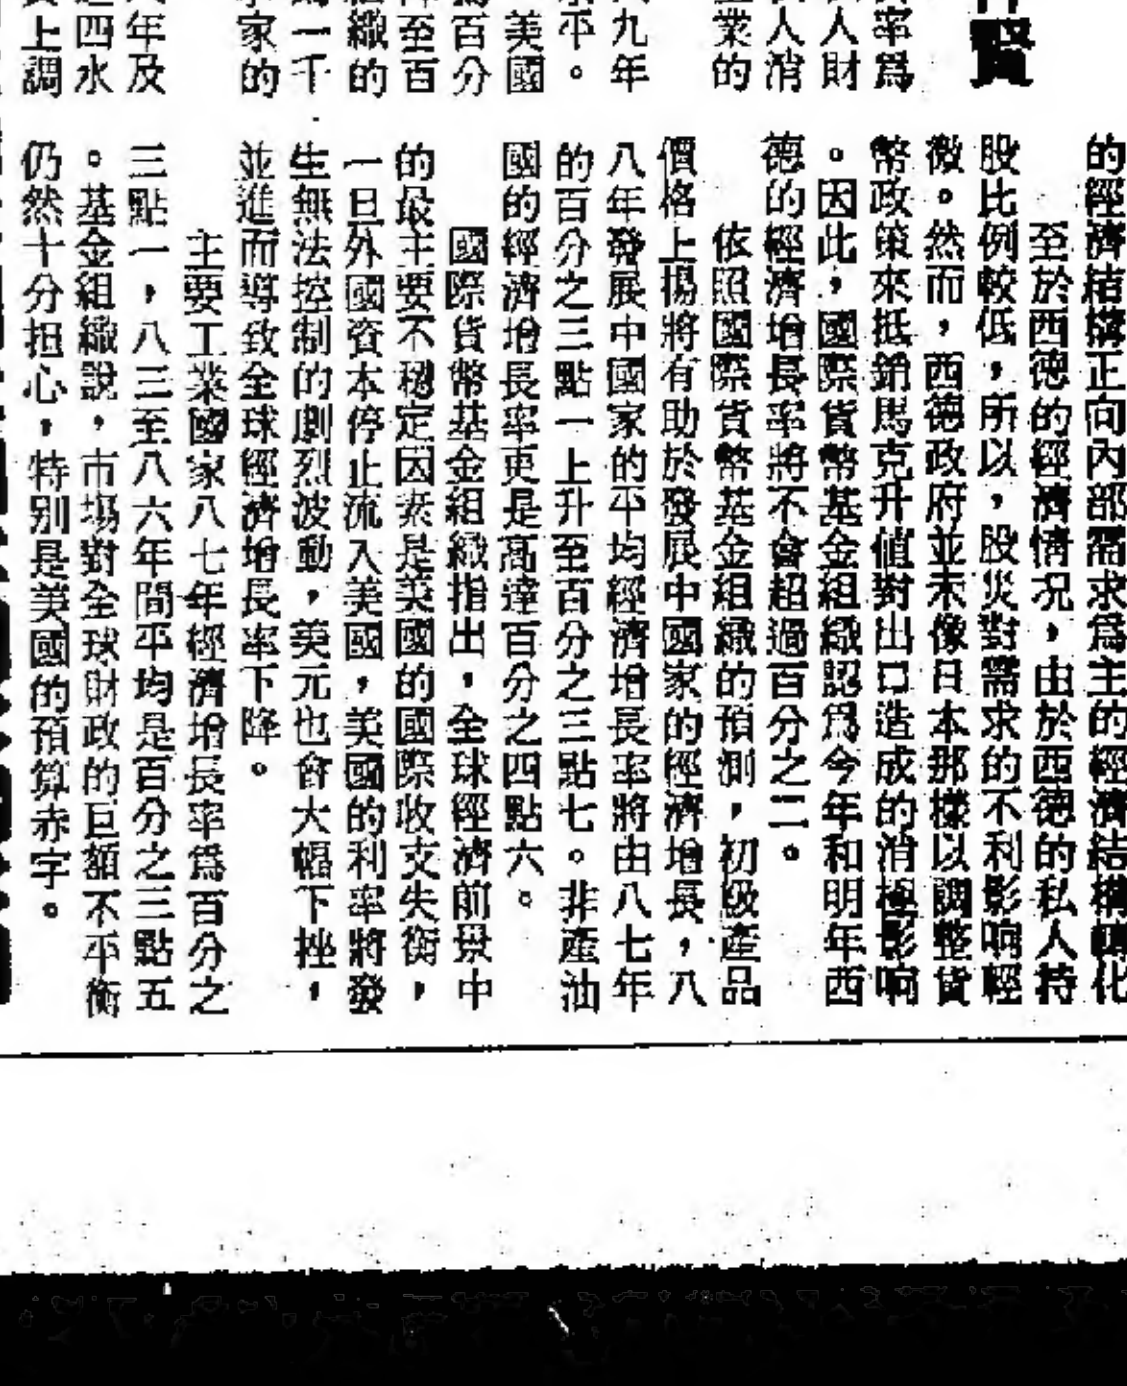 賢
率爲
人財
人消
業的
九年
平。
美國
百分
至百
織的
一千
家的
年及
四水
上調
的經濟結構正向內部需求爲主的經濟結構轉化
至於西德的經濟情況，由於西德的私人持
股比例較低，所以，股災對需求的不利影响輕
微。然而，西德政府並未像日本那樣以調整貨
幣政策來抵銷馬克升值對出口造成的消極影响
。因此，國際貨幣基金組織認爲今年和明年西
德的經濟增長率將不會超過百分之二。
依照國際貨幣基金組織的預測，初級產品
價格上揚將有助於發展中國家的經濟增長，八
八年發展中國家的平均經濟增長率將由八七年
的百分之三點一上升至百分之三點七。非產油
國的經濟增長率更是高達百分之四點六。
國際貨幣基金組織指出，全球經濟前景中
的最主要不穩定因素是美國的國際收支失衡，
一旦外國資本停止流入美國，美國的利率將發
生無法控制的劇烈波動，美元也會大幅下挫，
並進而導致全球經濟增長率下降。
主要工業國家八七年經濟增長率爲百分之
三點一，八三至八六年間平均是百分之三點五
。基金組織說，市場對全球財政的巨額不平衡
仍然十分担心，特別是美國的預算赤字。